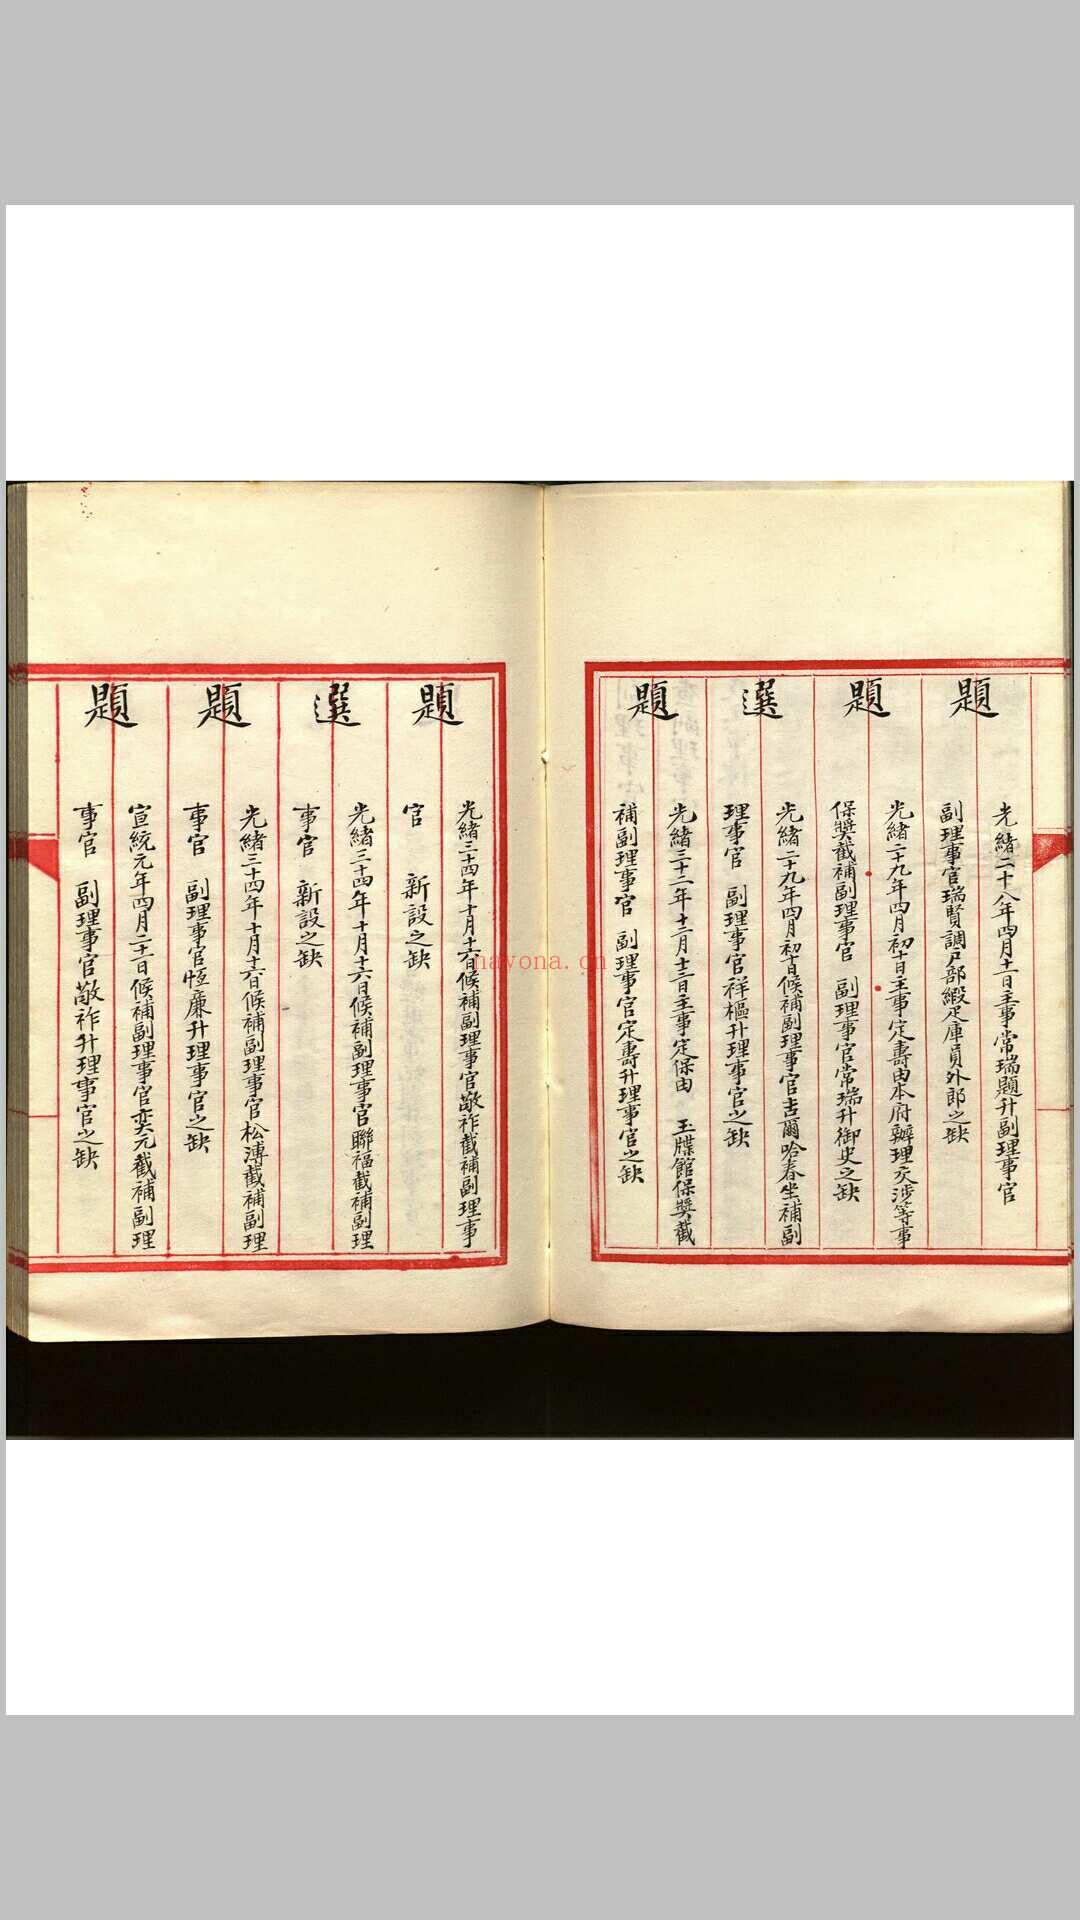 題
光緒二十八年四月十一日主事常瑞題升副理事官
副理事官瑞賢調戶部緞疋庫員外郎之缺
題
光緒二十九年四月初十日主事定壽由本府辦理交涉等事
保獎截補副理事官　副理事官常瑞升御史之缺
選
光緒二十九年四月初十日候補副理事官吉爾哈春坐補副
理事官　副理事官祥樞升理事官之缺
題
光緒三十二年十二月十三日主事定保由　玉牒館保獎截
補副理事官　副理事官定壽升理事官之缺
題
光緒三十四年十月十六日候補副理事官敬祚截補副理事
官　新設之缺
選
光緒三十四年十月十六日候補副理事官聯福截補副理
事官　新設之缺
題
光緒三十四年十月十六日候補副理事官松溥截補副理
事官　副理事官恆廉升理事官之缺
題
宣統元年四月二十日候補副理事官奕元截補副理
事官　副理事官敬祚升理事官之缺
nayona.cn